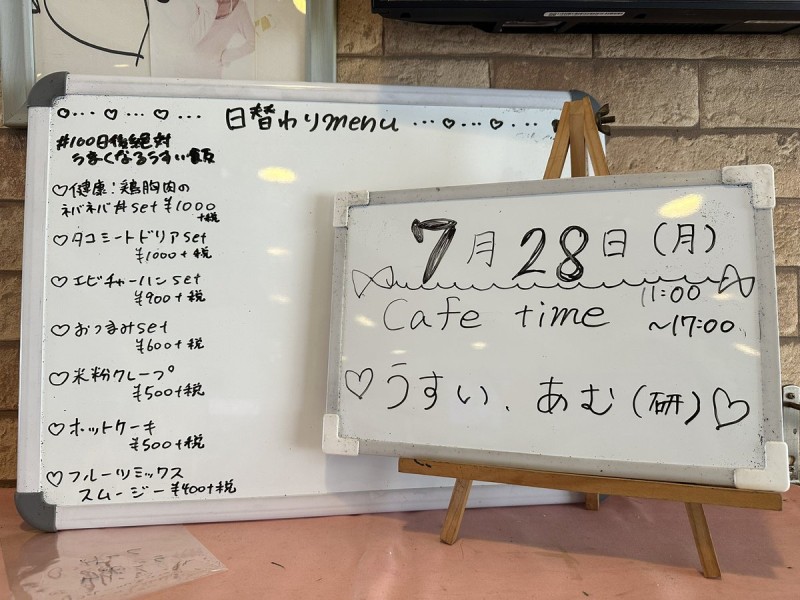 日替わりmenu
#100日後絶対
うまくなるうすい飯
♡健康!鶏胸肉の
ネバネバ丼set ¥1000
+税
♡タコミートドリアset
¥1000+税
♡エビチャーハンset
¥900+税
♡おつまみset
¥600+税
♡米粉クレープ
¥500+税
♡ホットケーキ
¥500+税
♡フルーツミックス
スムージー ¥400+税
7月28日(月)
Cafe time 11:00
~17:00
♡うすい、あむ(研)♡